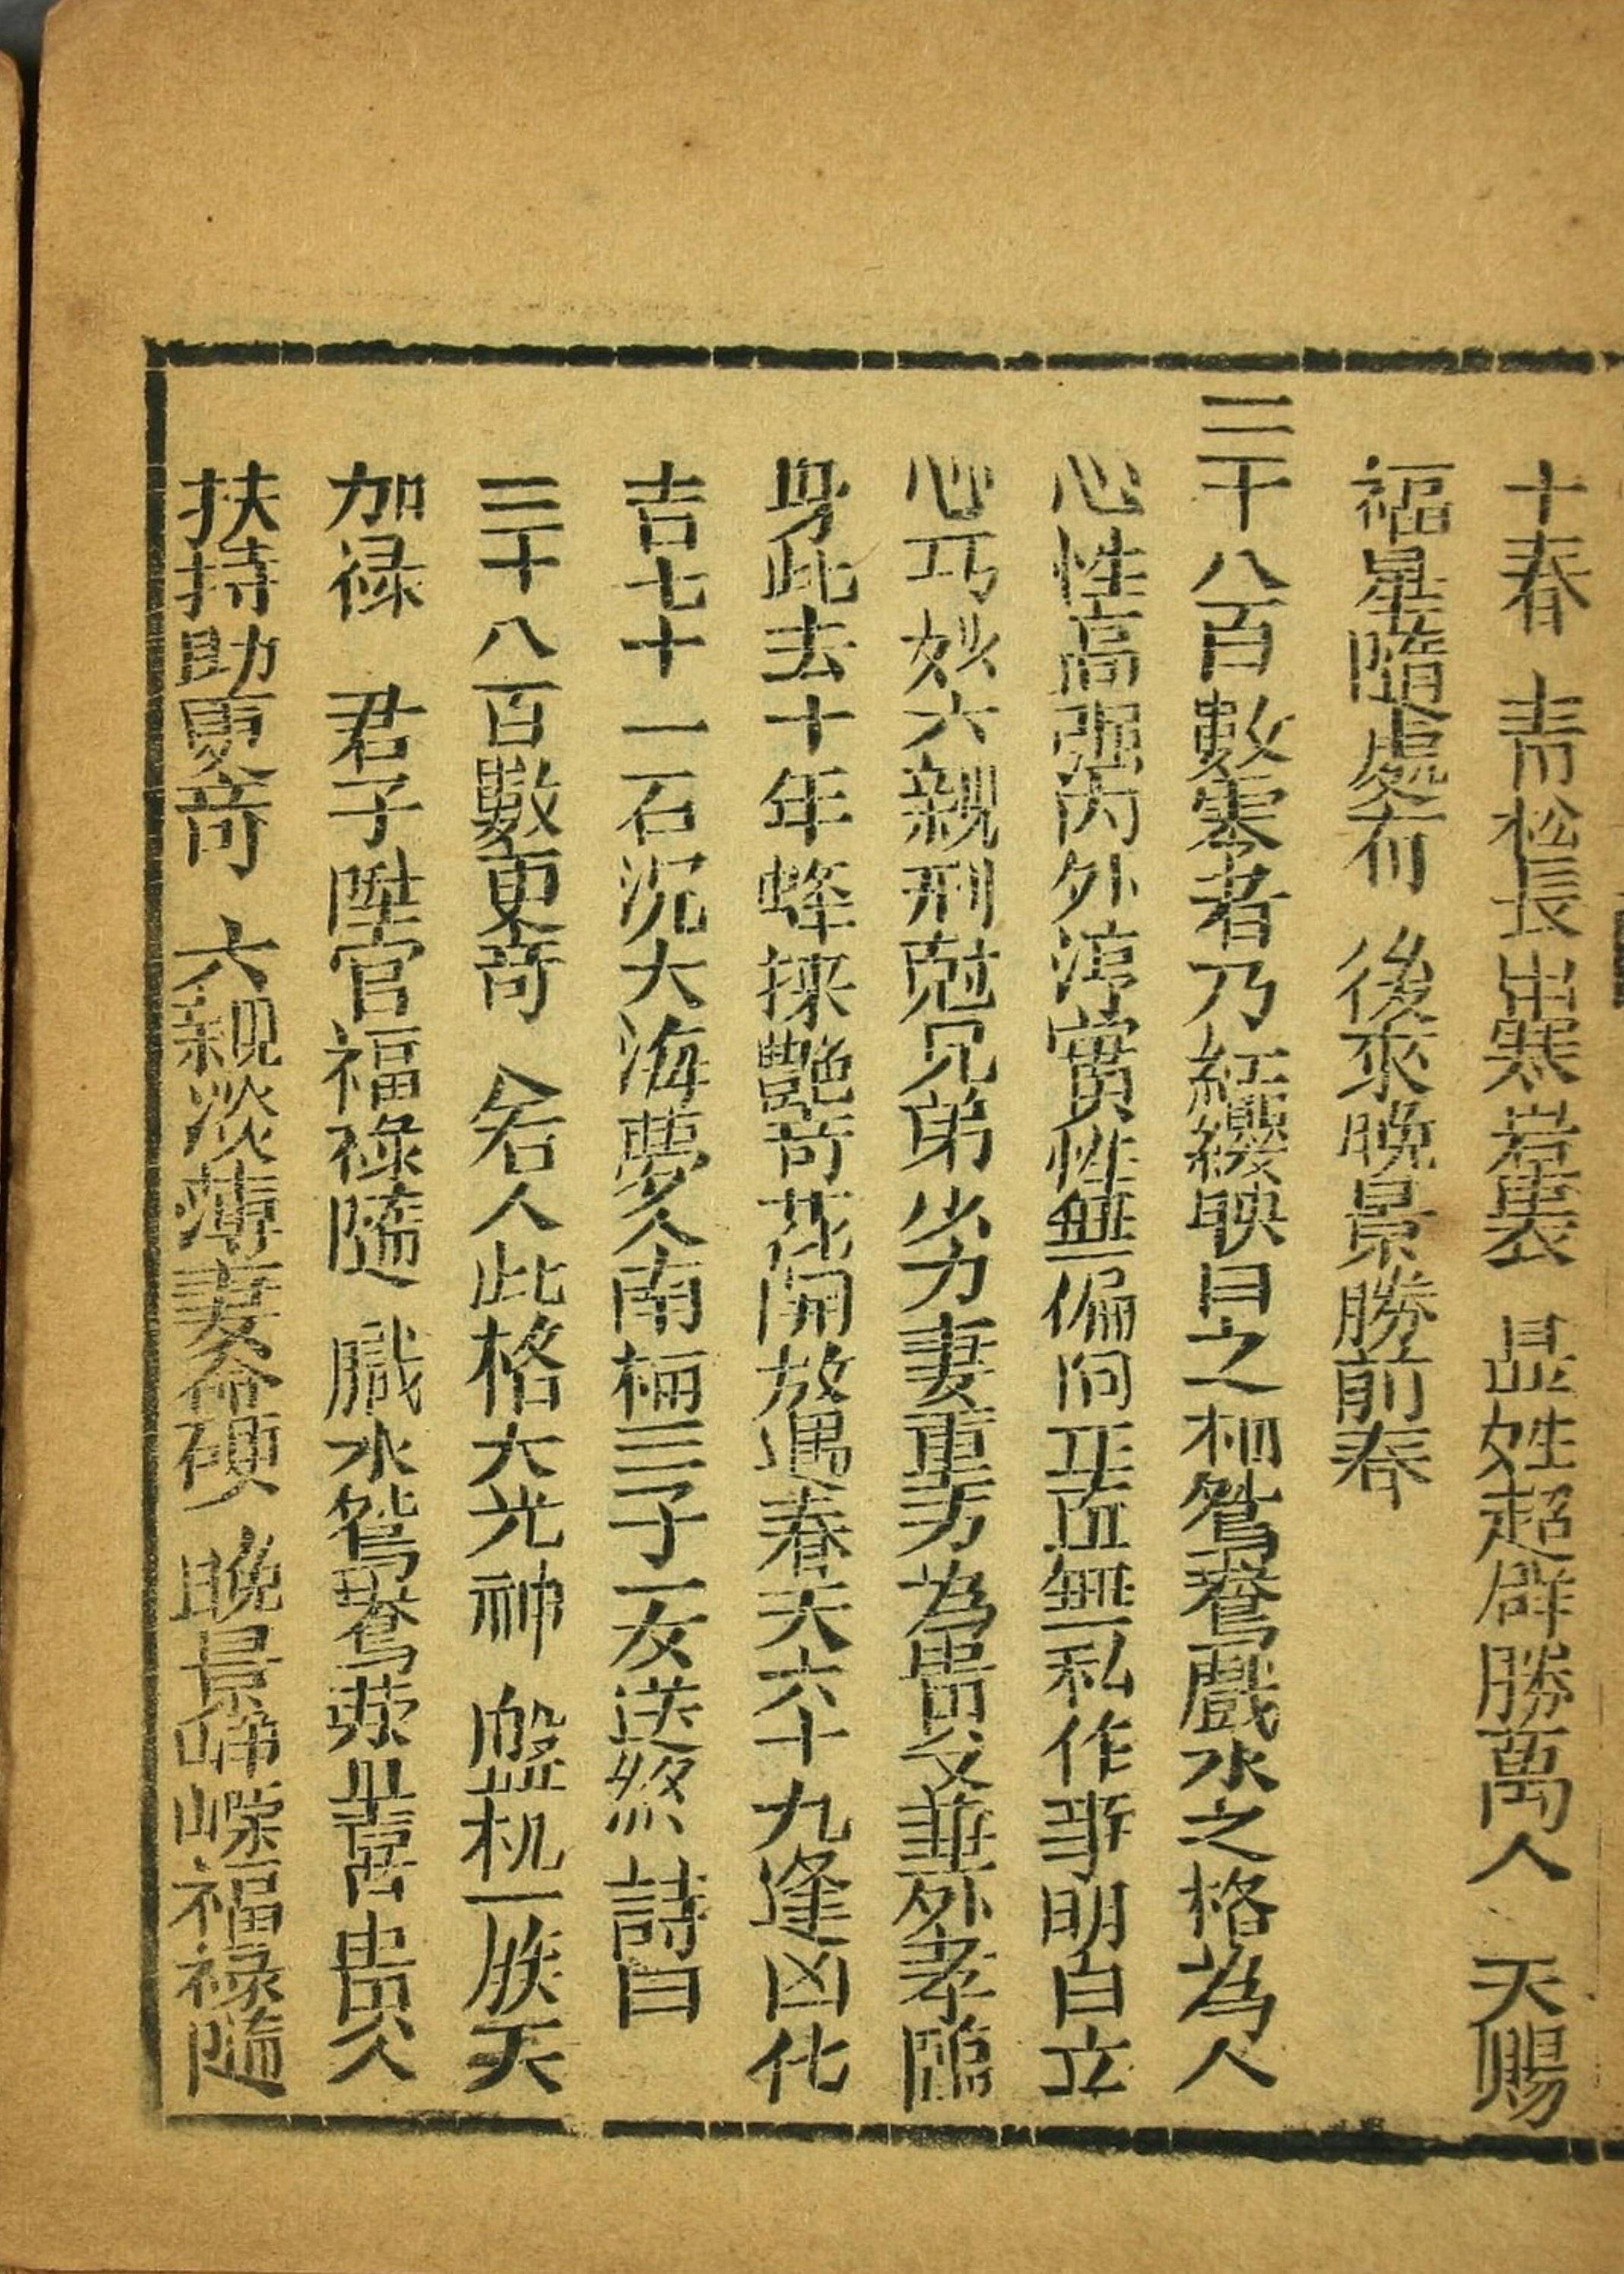 十春　青松長出寒岩裏　显姓超群勝萬人　天賜
福星隨處有　後來晚景勝前春
三千八百數零者乃紅纓映日之柳鴛鴦戲水之格為人
心性高强内外淳實性無偏向正直無私作事明白立
心巧妙六親刑尅兄弟少力妻重方為貴父華外孝臨
身此去十年蜂採艷奇花開放遇春天六十九逢凶化
吉七十一石沉大海夢入南柟三子一女送終　詩曰
三千八百數更竒　人若人此格大光神　盤机一族天
加禄　君子陞官福禄隨　戲水鴛鴦荣且喜貴人
扶持助更竒　六親淡薄妻命硬　晚景崢嶸福禄隨